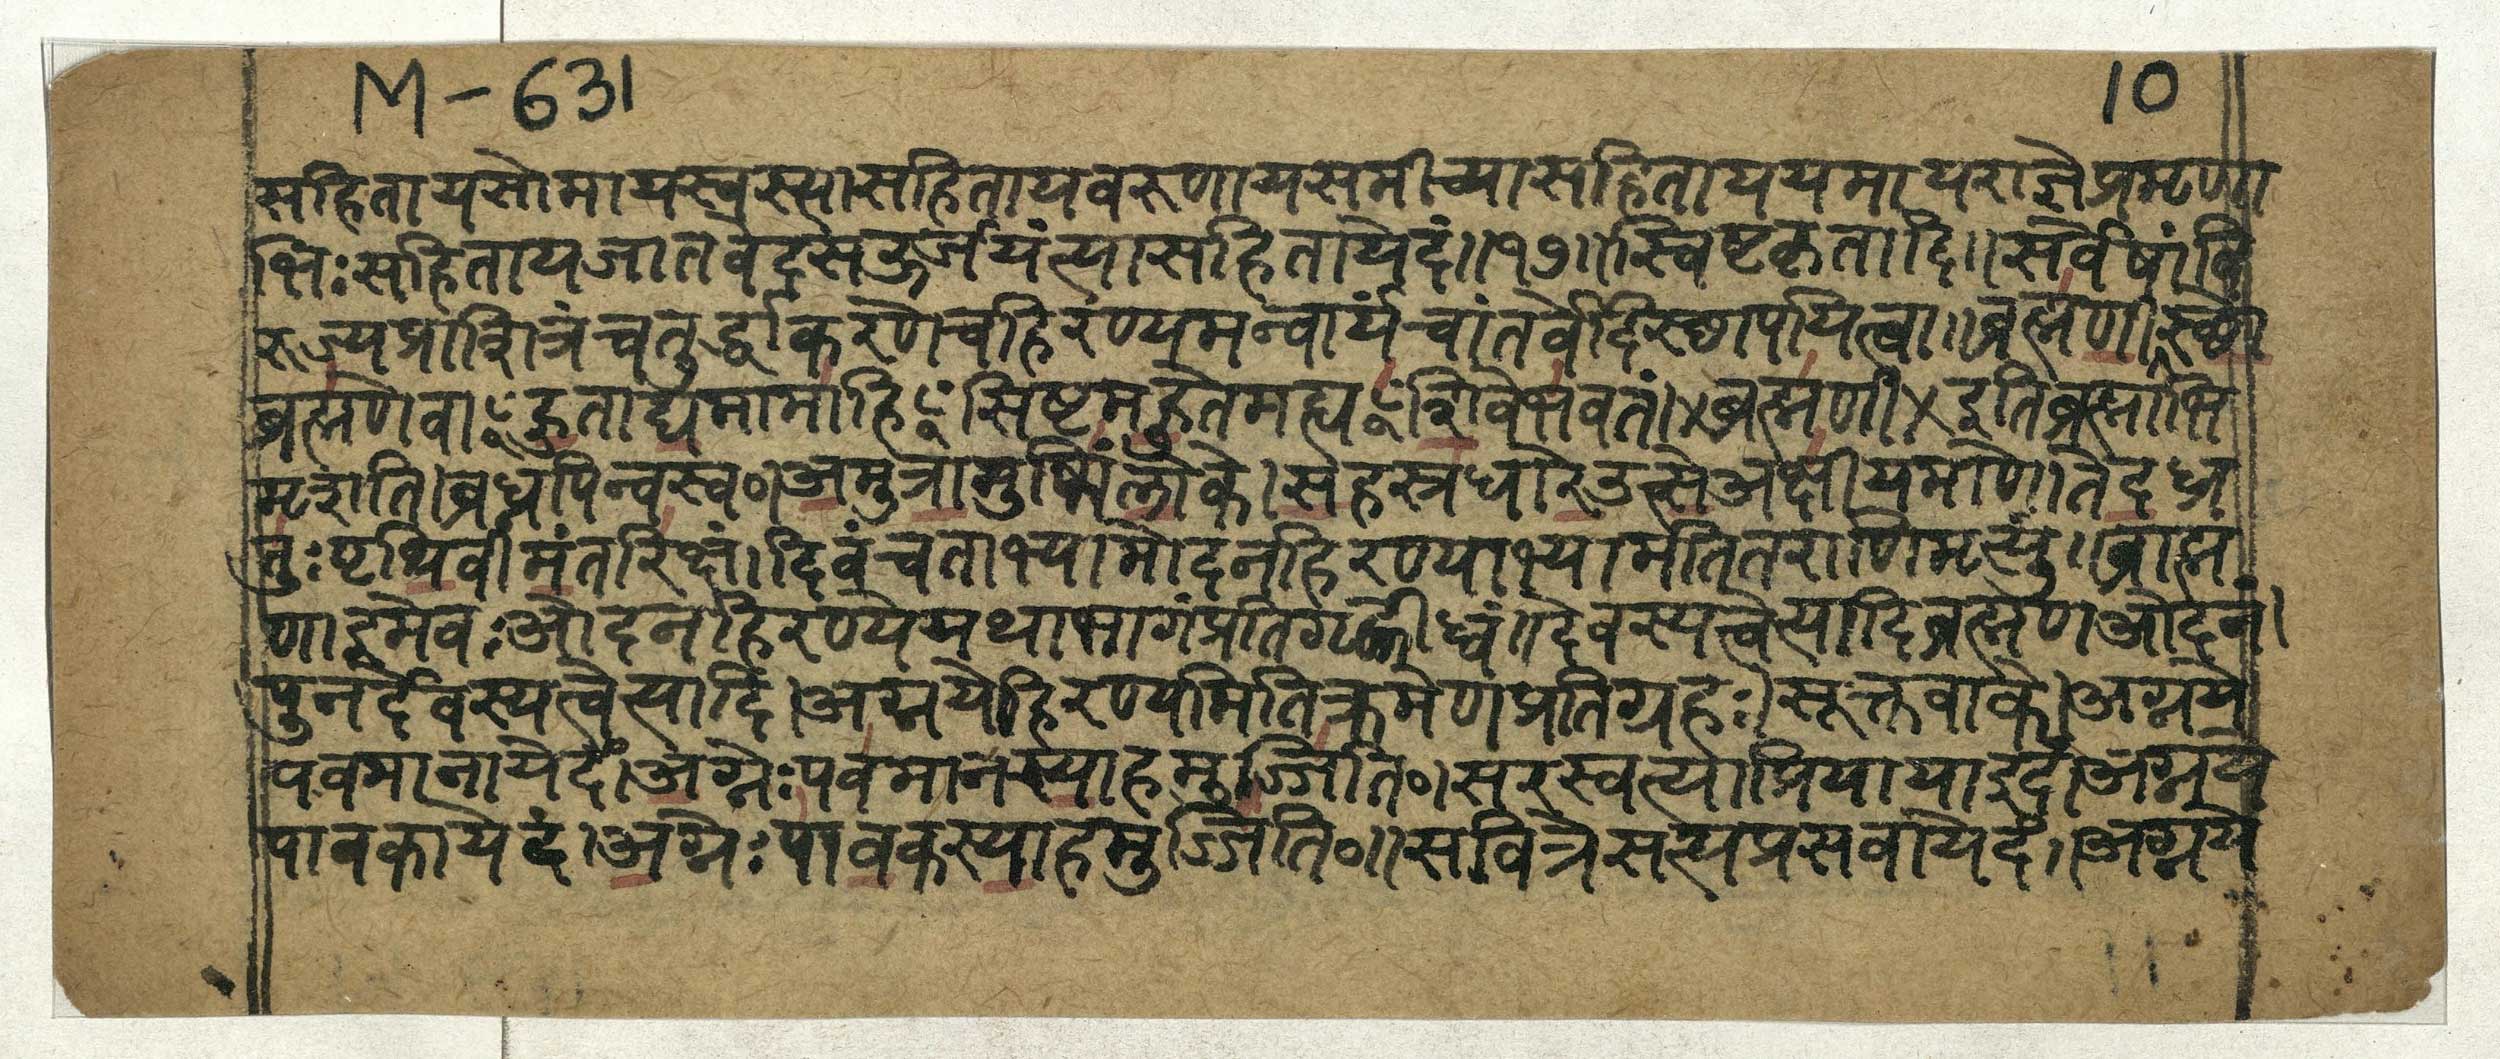 M-631 10
सहितायसोमायस्वस्त्यासहितायवरूणायसमीच्यासहिताययमायराज्ञेप्रमृणा
भिःसहितायजातवेदसऊर्जयंत्यासहितायेदं॥१७॥स्विष्टकृतादि॥सर्वेषांवि
रूज्यप्राशित्रंचतुर्द्धाकरणेचहिरण्यमन्वार्यंचांतर्वेदिस्थापयित्वा॥ब्रह्मणीस्थो
ब्रह्मणेवाꣳहुताद्यमामाहिꣳसिष्टमहुतेमह्यꣳशिवेभवतं।४ब्रह्मणी४इतिब्रह्माभि
मृशति।ब्रध्नपिन्वस्व०।अमुत्रामुष्मिंलोके।सहस्रधारेउत्सेअक्षीयमाणे।तेदध्र
तुःपृथिवीमंतरिक्षं।दिवंचताभ्यामोदनहिरण्याभ्यामतितराणिमृत्युं॥ब्राह्म
णाइमेवःओदनहिरण्येयथाभागंप्रतिगृह्णीध्वं॥देवस्यत्वेत्यादिब्रह्मणओदनं।
पुनर्देवस्यत्वेत्यादि।अग्नयेहिरण्यमितिक्रमेणप्रतिग्रहः।सूक्तवाके।अग्नये
पवमानायेदं।अग्नेःपवमानस्याहमुज्जिति०।सरस्वत्याप्रियायाइदं।अग्नये
पावकायेदं।अग्नेःपावकस्याहमुज्जिति०॥सवित्रेसत्यप्रसवायेदं॥अग्नये